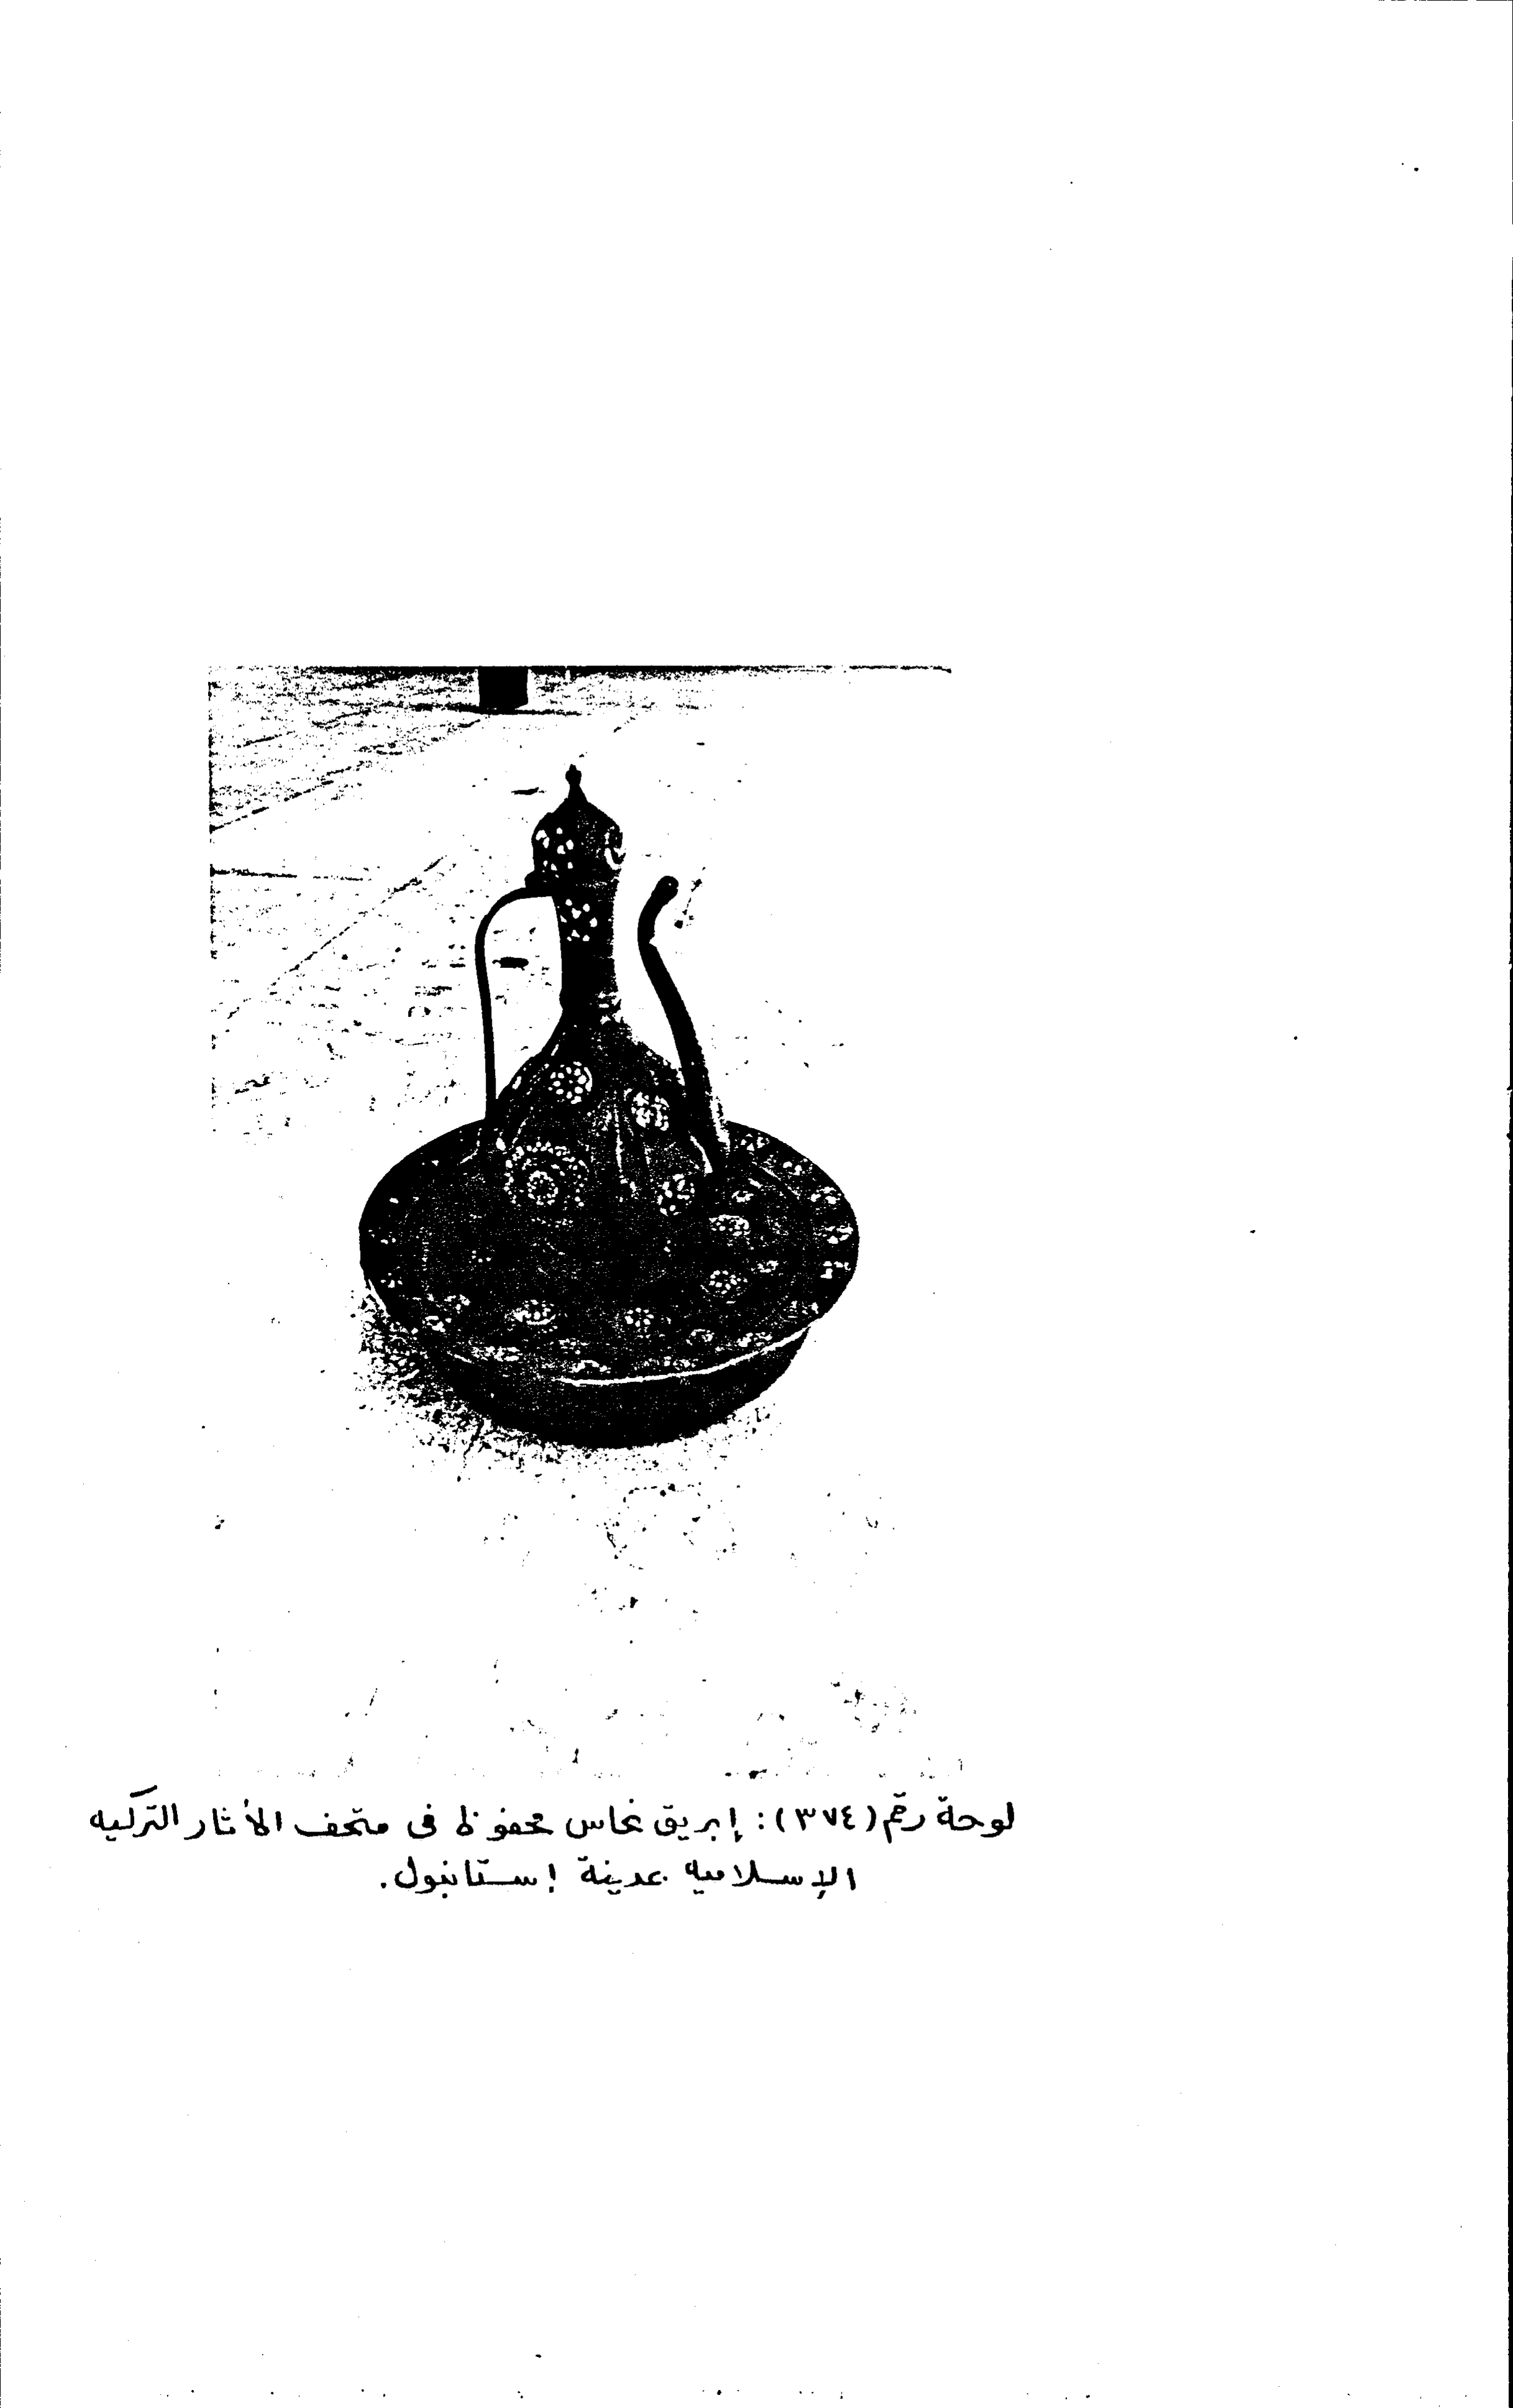 لوحة رقم (٣٧٤): إبريق نحاس محفوظ فى متحف الأثار التركيه
الإسلاميه بمدينة إستانبول.